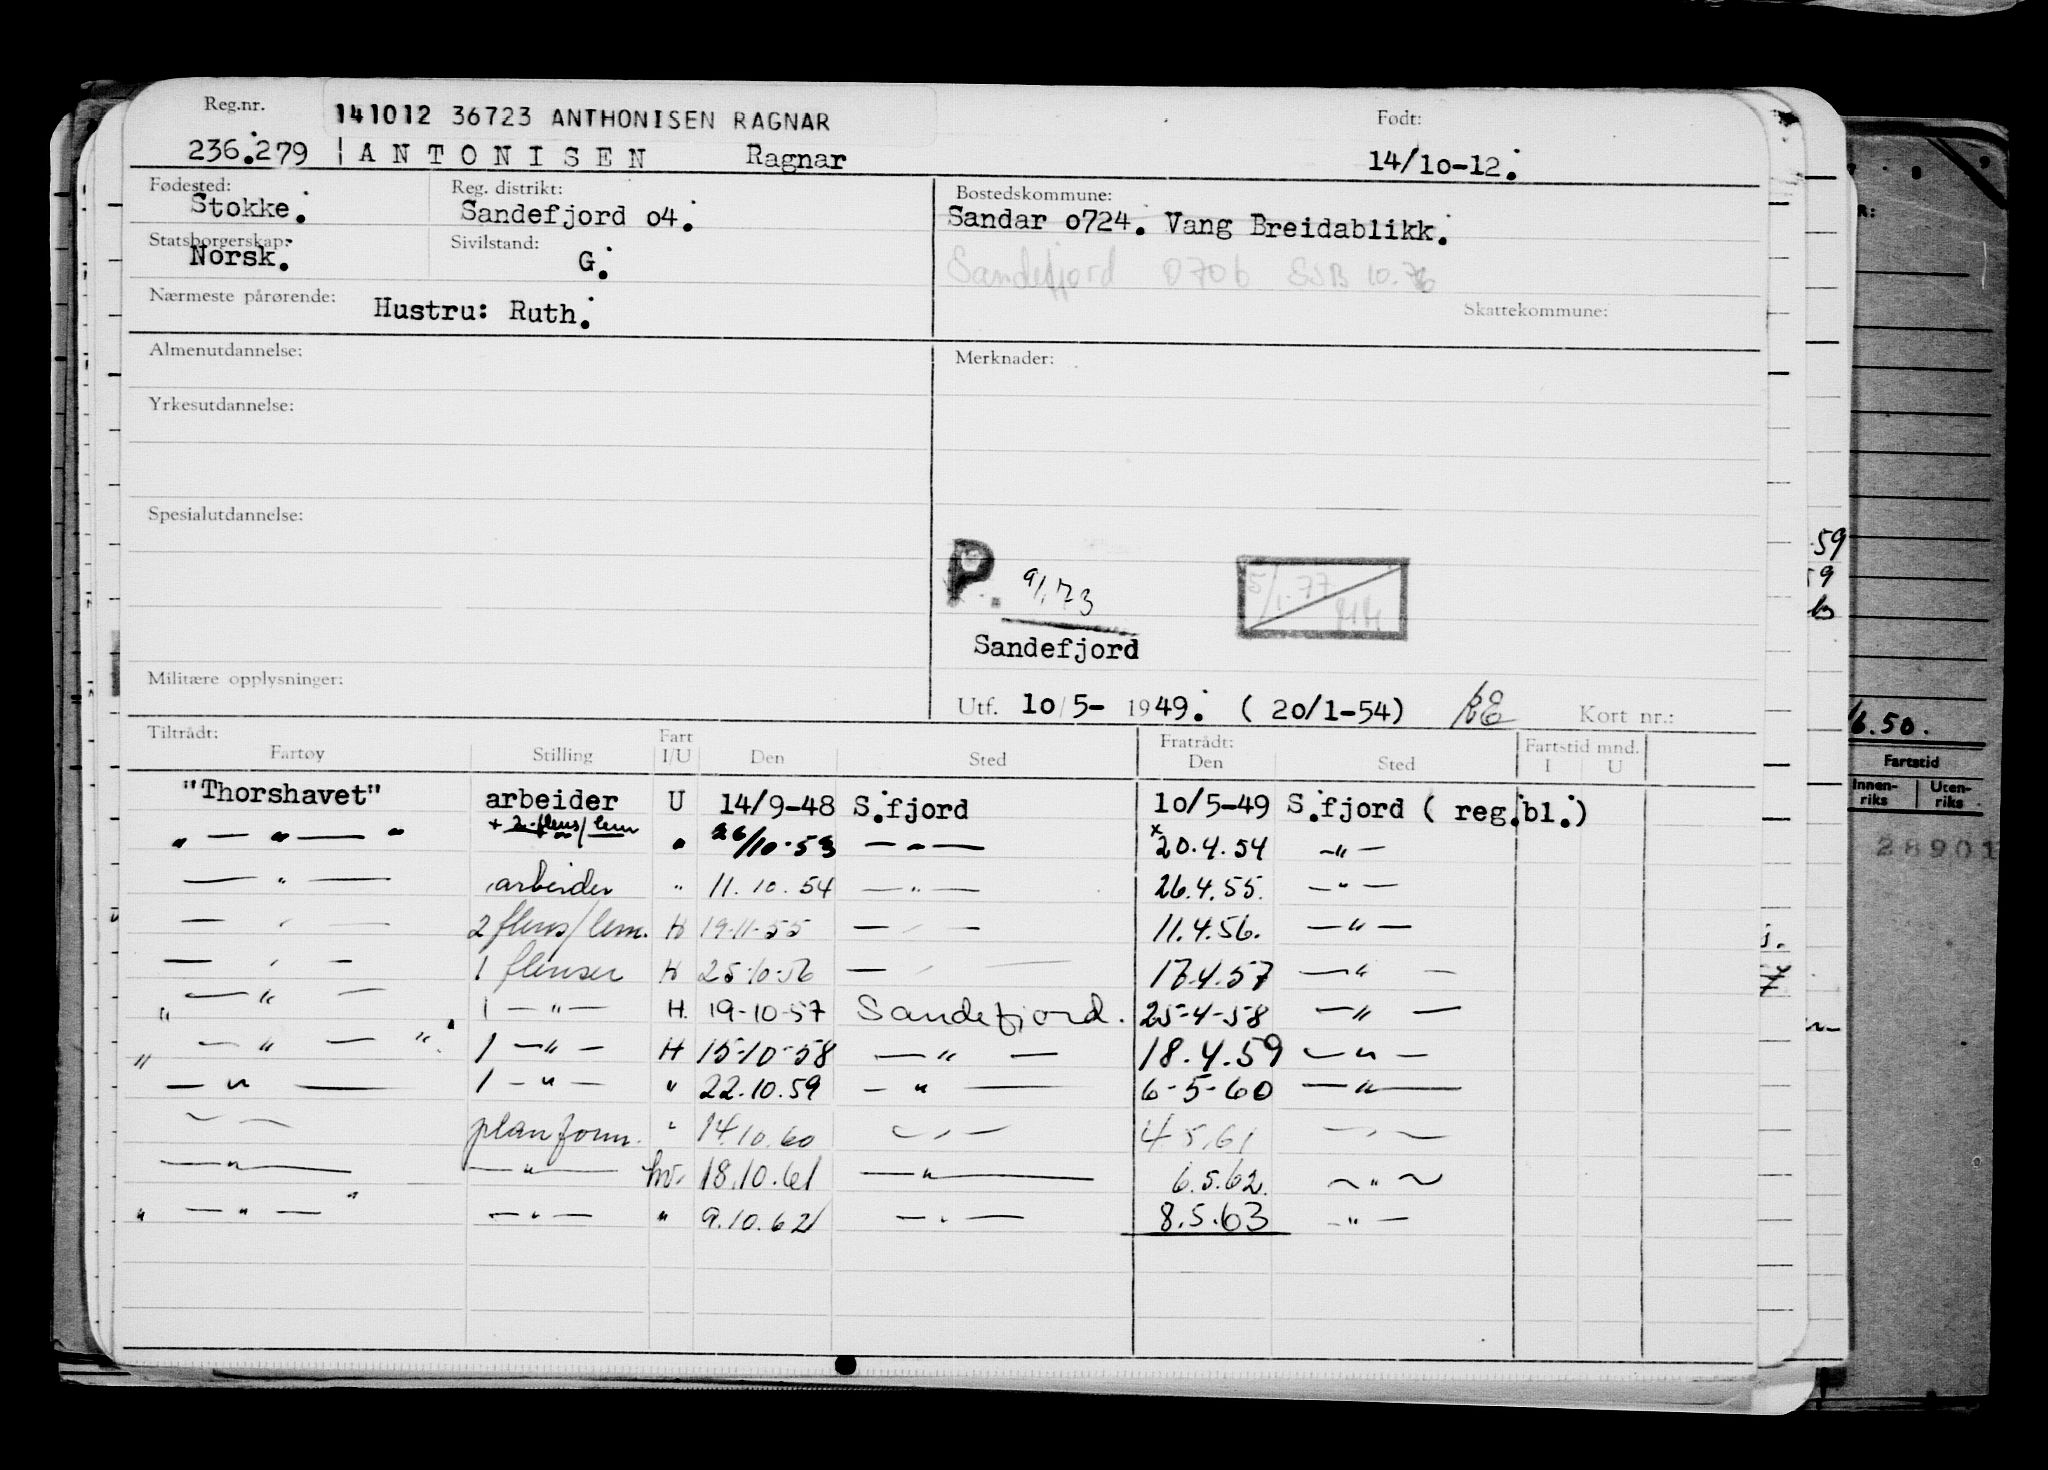 Reg.nr.
141012 36723 ANTHONISEN RAGNAR
Født:
236.279 ANTONISEN Ragnar 14/10-12.
Fødested: Stokke.
Reg. distrikt: Sandefjord 04.
Bostedskommune: Sandar 0724. Vang Breidablikk.
Statsborgerskap: Norsk.
Sivilstand: G.
Sandefjord 0706 SJB 10.76
Nærmeste pårørende: Hustru: Ruth.
Skattekommune:
Almenutdannelse:
Merknader:
Yrkesutdannelse:
Spesialutdannelse:
P. 9/1.73
5/1.77
Sandefjord
Militære opplysninger:
Utf. 10/5- 1949. (20/1-54) Kort nr.:
Tiltrådt: Fartøy Stilling Fart I/U Den Sted Fratrådt: Den Sted Fartstid mnd. I U
"Thorshavet" arbeider U 14/9-48 S.fjord 10/5-49 S.fjord ( reg.bl.)
" — " — " + 2.flens/lem " 26/10-53 — " — x20.4.54 — " —
— " — arbeider " 11.10.54 — " — 26.4.55. — " —
— " — 2 flens/lem. H 19-11-55 — " — 11.4.56. — " —
— " — 1 flenser H 25-10-56 — " — 17.4.57 — " —
" — " — 1 — " — H. 19-10-57 Sandefjord. 25-4-58 — " —
" — " — ". 1 — " — H 15-10-58 — " — 18.4.59 — " —
— " — 1 — " — " 22.10.59 — " — 6-5-60 — " —
— " — plan form. " 14.10.60 — " — 4 5.61 — " —
— " — — " — hv. 18.10.61 — " — 6.5.62. — " —
" — " — " — " — " 9.10.62 — " — 8.5.63 — " —
R:
.59
9
6.50.
Fartstid
Innen-riks
Uten-riks
28901